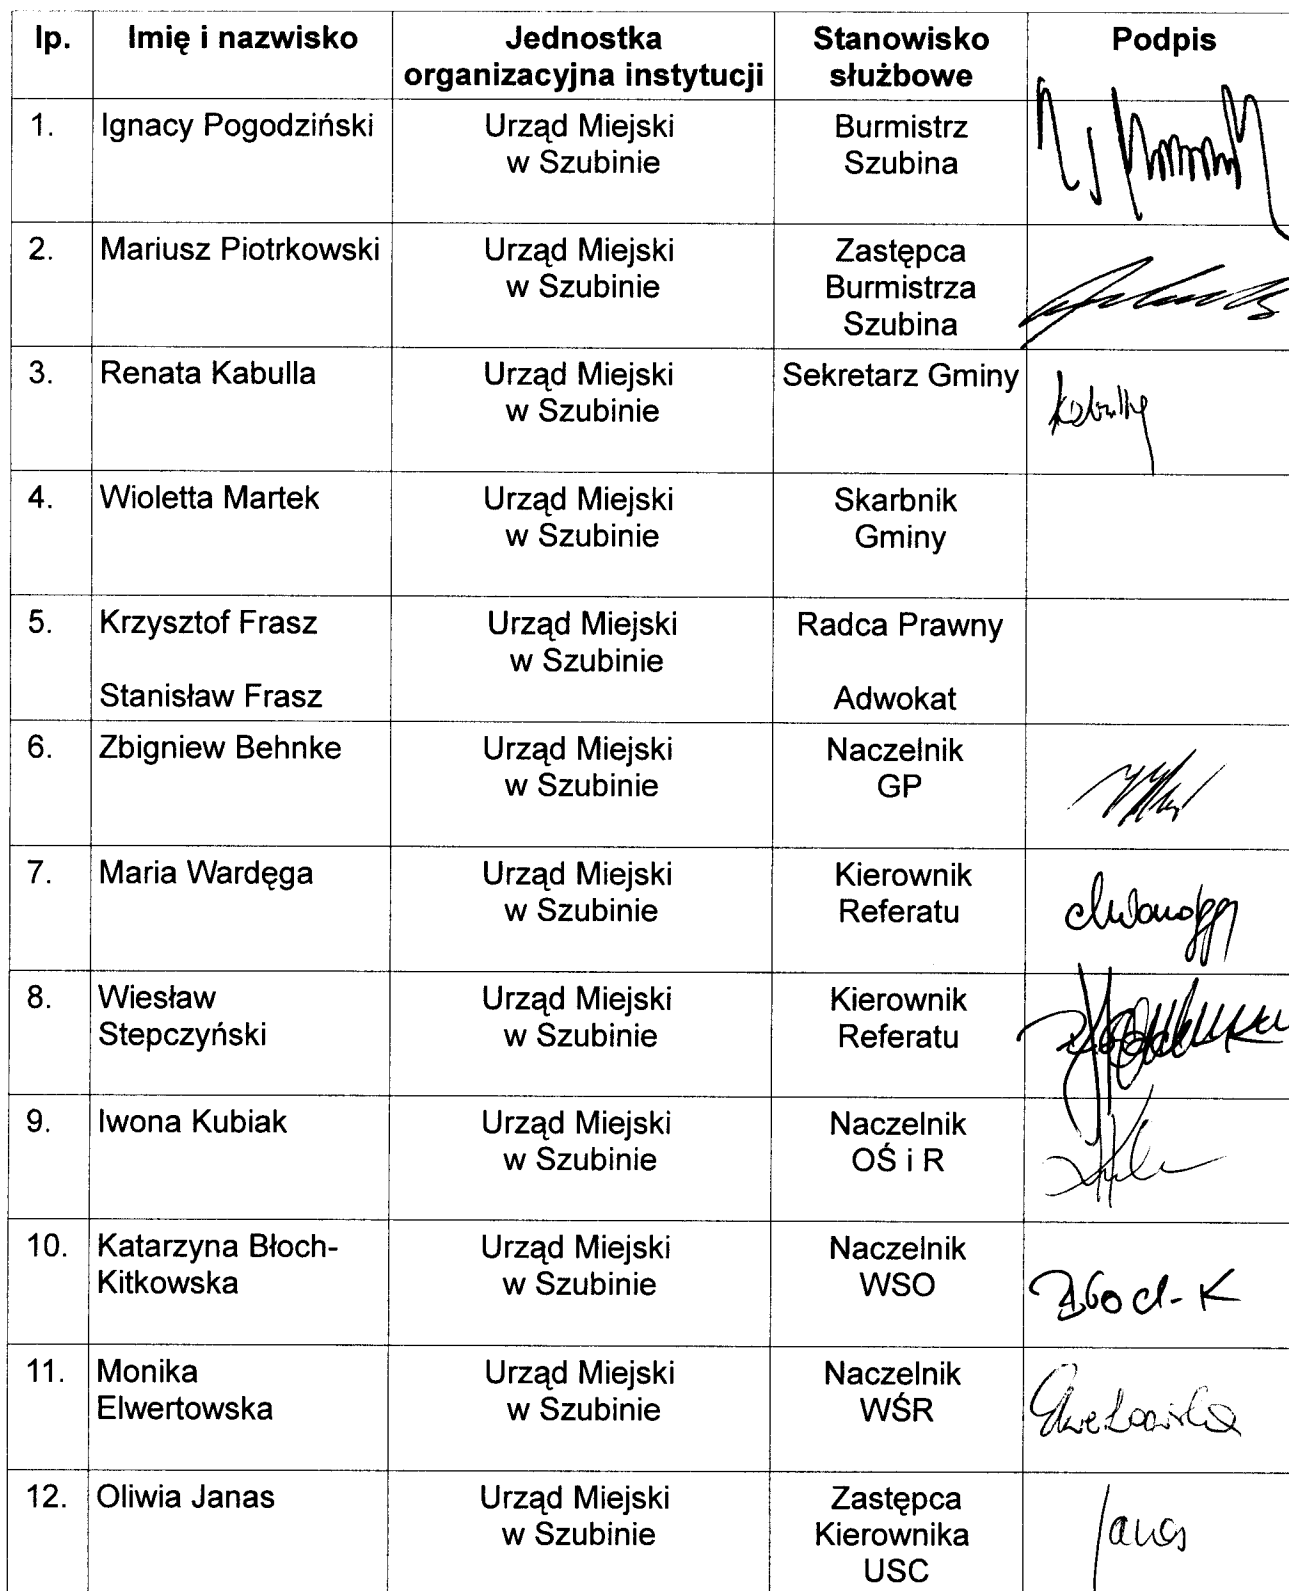 lp. Imię i nazwisko Jednostka organizacyjna instytucji Stanowisko służbowe Podpis
1. Ignacy Pogodziński Urząd Miejski w Szubinie Burmistrz Szubina
2. Mariusz Piotrkowski Urząd Miejski w Szubinie Zastępca Burmistrza Szubina
3. Renata Kabulla Urząd Miejski w Szubinie Sekretarz Gminy
4. Wioletta Martek Urząd Miejski w Szubinie Skarbnik Gminy
5. Krzysztof Frasz Urząd Miejski w Szubinie Radca Prawny
Stanisław Frasz Adwokat
6. Zbigniew Behnke Urząd Miejski w Szubinie Naczelnik GP
7. Maria Wardęga Urząd Miejski w Szubinie Kierownik Referatu
8. Wiesław Stepczyński Urząd Miejski w Szubinie Kierownik Referatu
9. Iwona Kubiak Urząd Miejski w Szubinie Naczelnik OŚ i R
10. Katarzyna Błoch-Kitkowska Urząd Miejski w Szubinie Naczelnik WSO
11. Monika Elwertowska Urząd Miejski w Szubinie Naczelnik WŚR
12. Oliwia Janas Urząd Miejski w Szubinie Zastępca Kierownika USC Janas